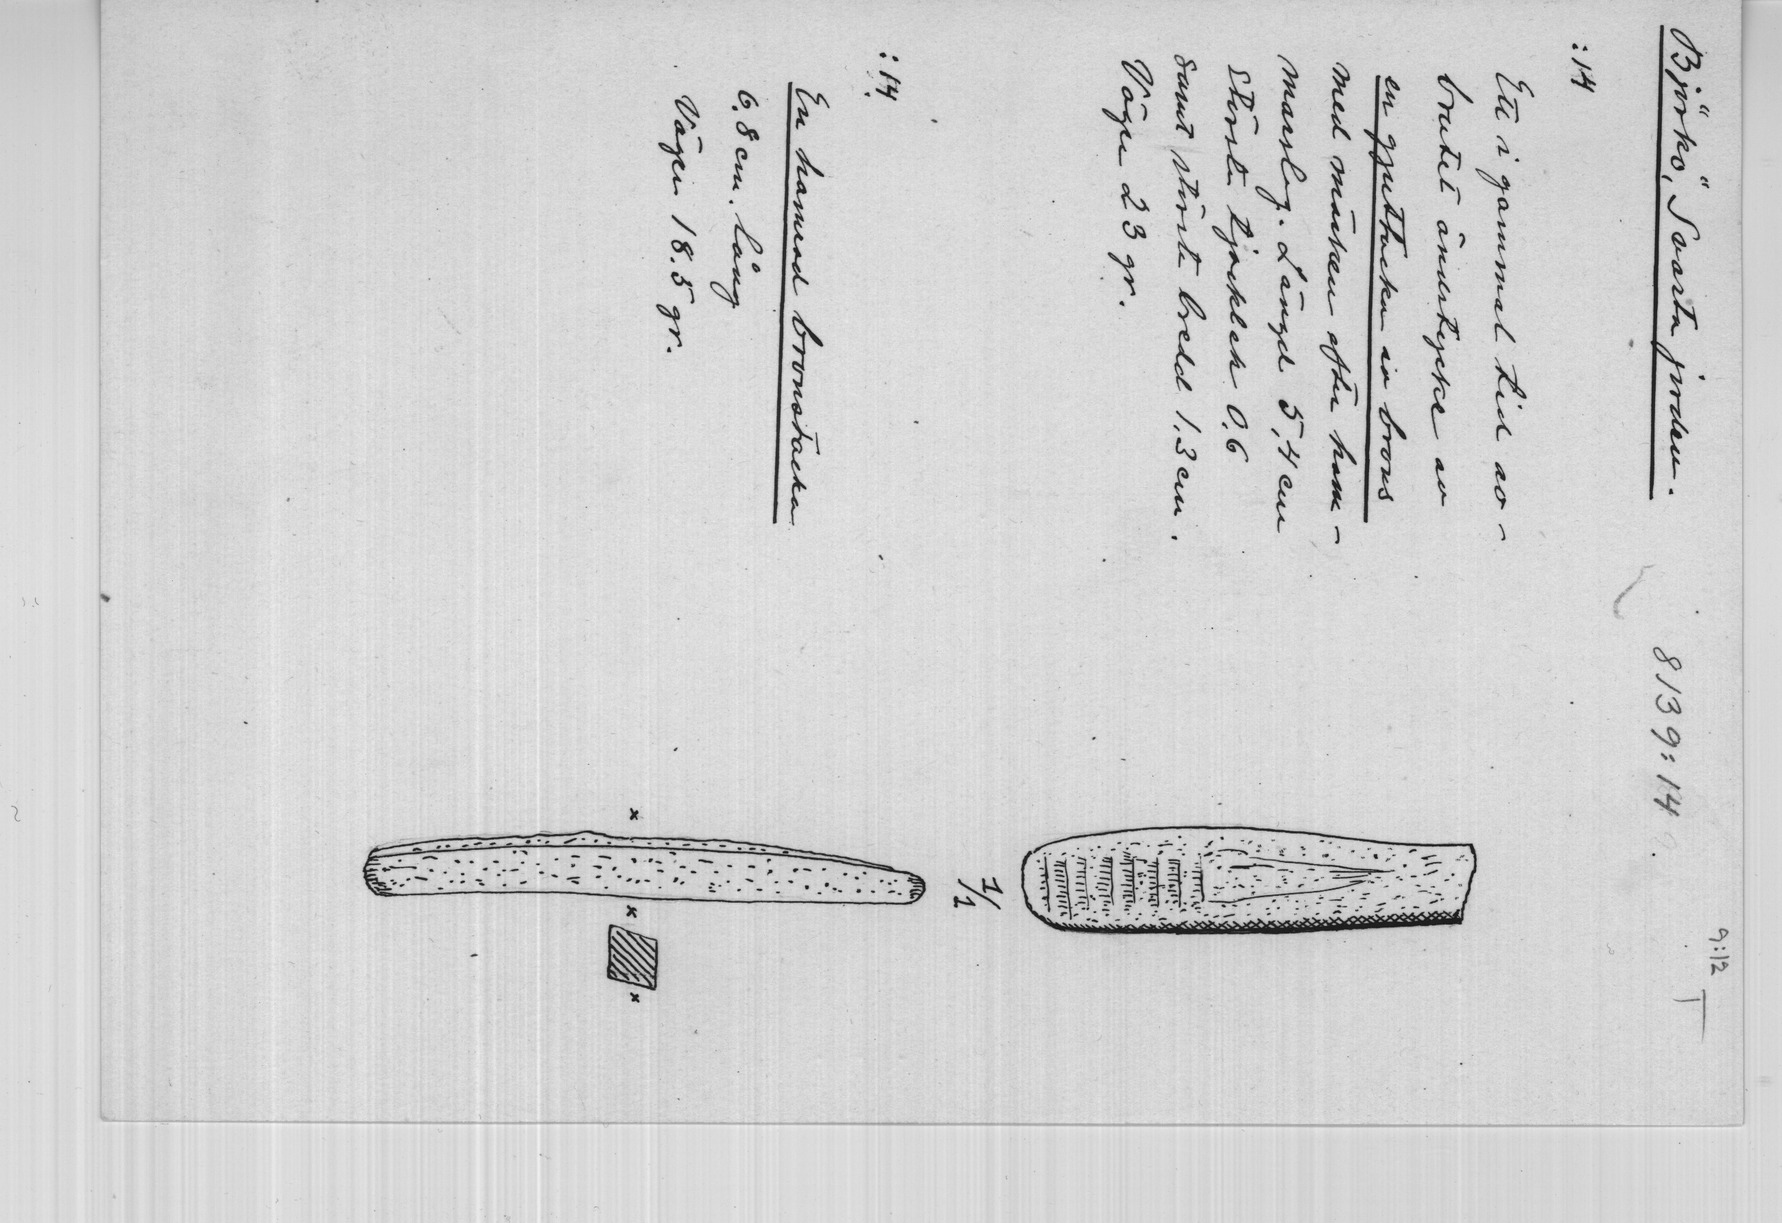 Björkö, "Svarta jorden". 8139:14
9:12
:14
Ett i gammal tid av-
brutet ändstycke av
en gjuttacka av brons
med märken efter ham-
marslag. Längd 5,4 cm
största tjocklek 0.6
samt största bredd 1.3 cm.
Väger 23 gr.
1/1
:14.
En hamrad bronstacka
6.8 cm. lång
Väger 18.5 gr.
x
x
x